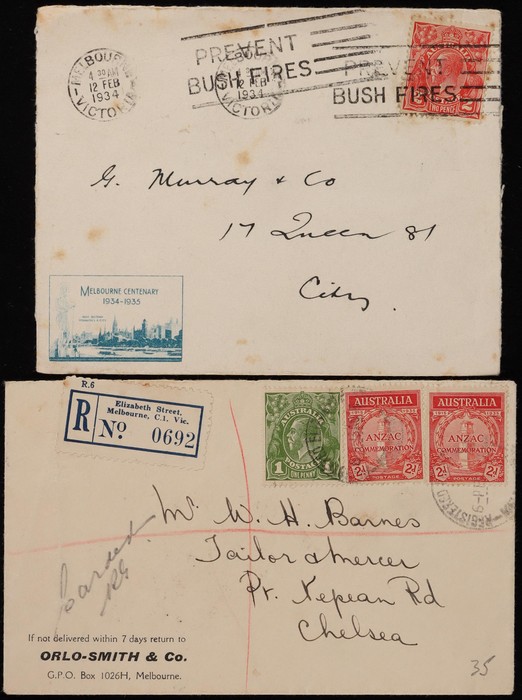 MELBOURNE
4 30 AM
12 FEB
1934
VICTORIA
PREVENT
BUSH FIRES
MELBOURNE
12 FEB
1934
VICTORIA
PREVENT
BUSH FIRES
TWO PENCE
G. Murray & Co
17 Queen St
City.
MELBOURNE CENTENARY
1934-1935
R.6
R
Elizabeth Street,
Melbourne, C.1. Vic.
No. 0692
AUSTRALIA
POSTAGE
1 1
ONE PENNY
AUSTRALIA
1915 1935
ANZAC
COMMEMORATION
2d 2d
POSTAGE
AUSTRALIA
1915 1935
ANZAC
COMMEMORATION
2d 2d
POSTAGE
REGISTERED
Mr W. H. Barnes
Tailor & Mercer
Pt. Nepean Rd
Chelsea
Carded
If not delivered within 7 days return to
ORLO-SMITH & Co.
G.P.O. Box 1026H, Melbourne.
35